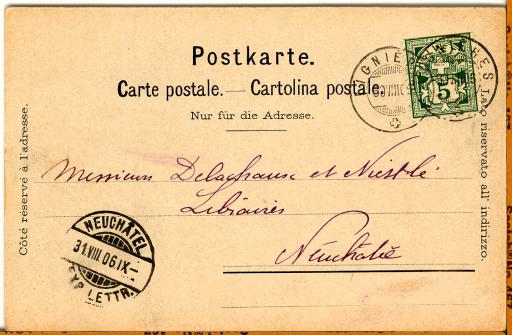 Postkarte.
Carte postale. — Cartolina postale.
Nur für die Adresse.
Côté réservé à l'adresse.
Lato riservato all' indirizzo.
5
Messieurs Delachaux et Niestlé
Libraires
Neuchâtel
NEUCHÂTEL
31.VIII.06 IX–
EXP. LETTR.